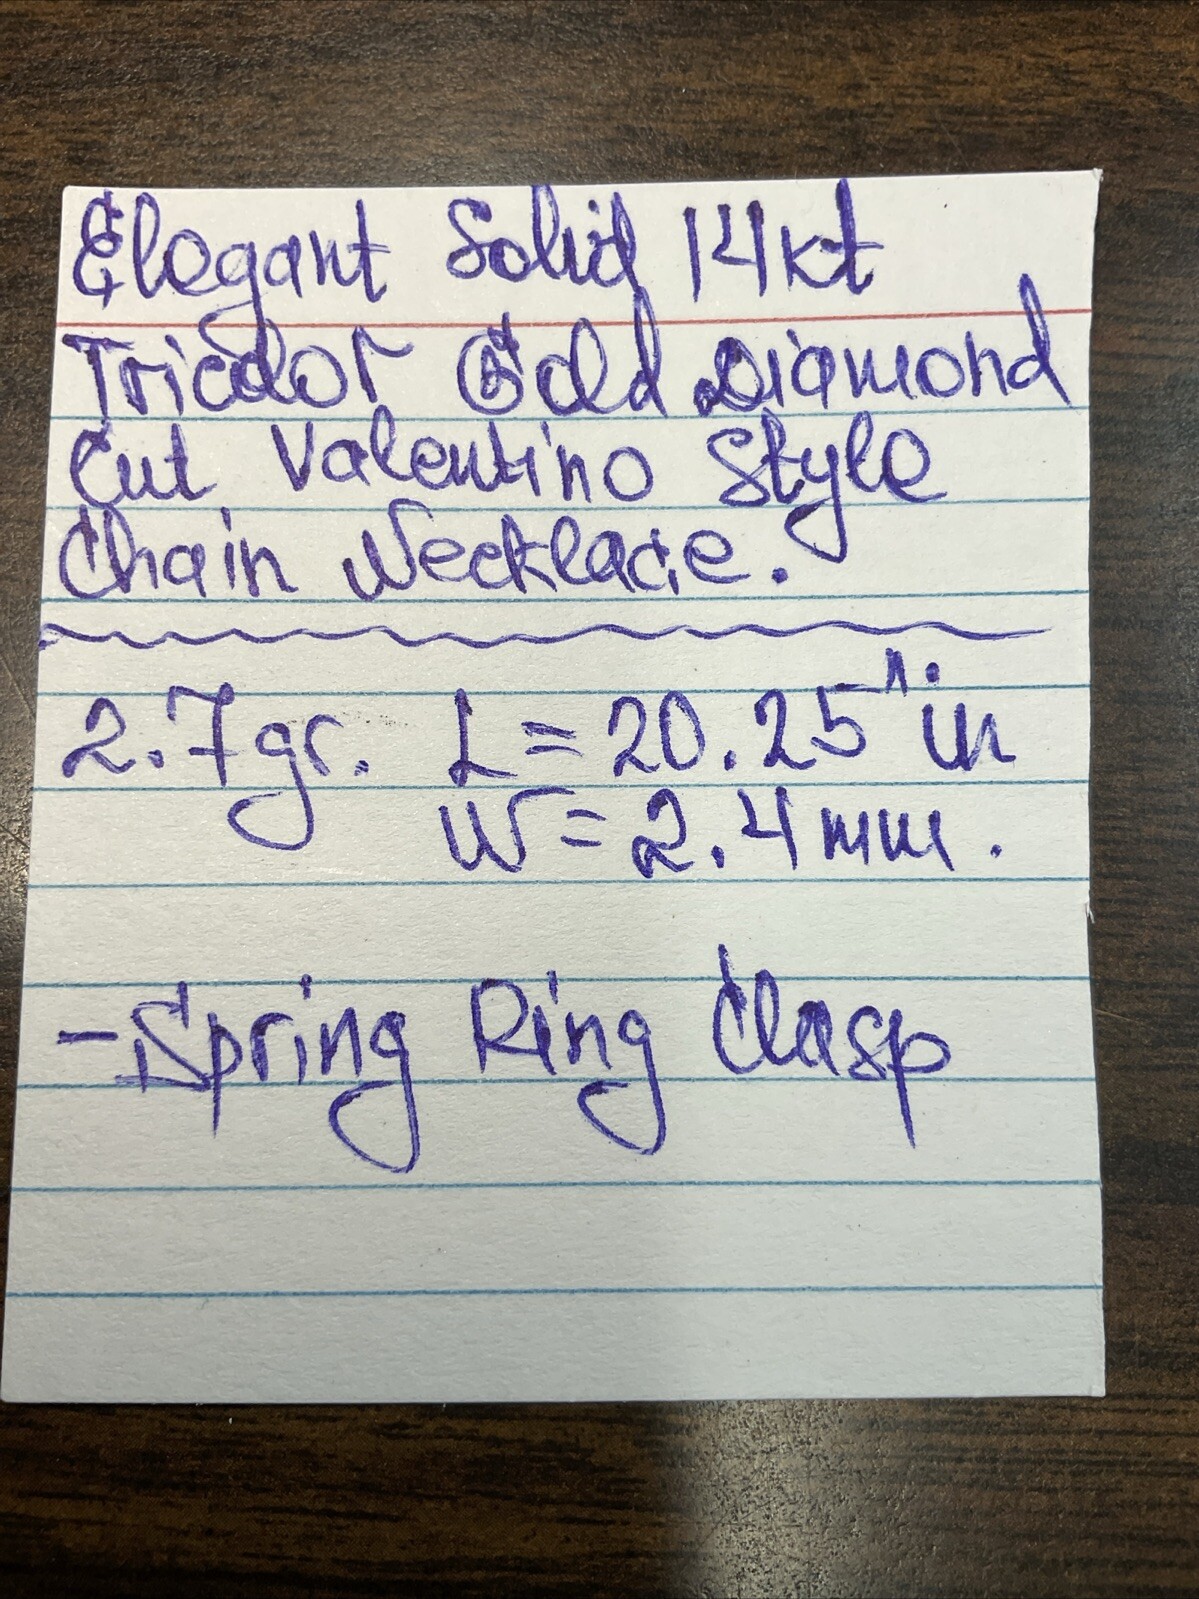 Elegant Solid 14kt
Tricolor Gold Diamond
Cut Valentino Style
Chain Necklace.
2.7gr. L=20.25" in
W=2.4mm.
-Spring Ring Clasp